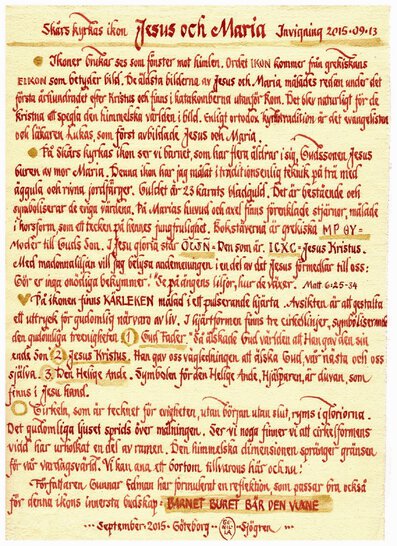 Skärs kyrkas ikon Jesus och Maria Invigning 2015.09.13
Ikoner brukar ses som fönster mot himlen. Ordet IKON kommer från grekiskans
EIKON som betyder bild. De äldsta bilderna av Jesus och Maria målades redan under det
första århundradet efter Kristus och finns i katakomberna utanför Rom. Det blev naturligt för de
kristna att spegla den himmelska världen i bild. Enligt ortodox kyrkotradition är det evangelisten
och läkaren Lukas, som först avbildade Jesus och Maria.
På Skärs kyrkas ikon ser vi barnet, som har flera åldrar i sig, Gudssonen Jesus
buren av mor Maria. Denna ikon har jag målat i traditionsenlig teknik på trä med
äggula och rivna jordfärger. Guldet är 23 karats bladguld. Det är bestående och
symboliserar de eviga världena. På Marias huvud och axel finns förenklade stjärnor, målade
i korsform, som ett tecken på hennes jungfrulighet. Bokstäverna är grekiska MP ΘY -
Moder till Guds Son. I Jesu gloria står OCWN - Den som är. ICXC - Jesus Kristus.
Med madonnaliljan vill jag belysa andemeningen i en del av det Jesus förmedlar till oss:
Gör er inga onödiga bekymmer. Se på ängens liljor, hur de växer. Matt 6:25-34
På ikonen finns KÄRLEKEN målad i ett pulserande hjärta. Avsikten är att gestalta
ett uttryck för gudomlig närvaro av liv. I hjärtformen finns tre cirkellinjer, symboliserande
den gudomliga treenigheten. 1 Gud Fader. "Så älskade Gud världen att Han gav den sin
ende Son. 2 Jesus Kristus. Han gav oss vägledningen att älska Gud, vår nästa och oss
själva. 3. Den Helige Ande. Symbolen för den Helige Ande, Hjälparen, är duvan, som
finns i Jesu hand.
Cirkeln, som är tecknet för evigheten, utan början utan slut, ryms i gloriorna.
Det gudomliga ljuset sprids över målningen. Ser vi noga finner vi att cirkelformens
vidd har urholkat en del av ramen. Den himmelska dimensionen spränger gränsen
för vår vardagsvärld. Vi kan ana ett bortom tillvarons här och nu.
Författaren Gunnar Edman har formulerat en reflektion, som passar bra också
för denna ikons innersta budskap: BARNET BURET BÄR DEN VUXNE
... September 2015 · Göteborg - Sjögren ...